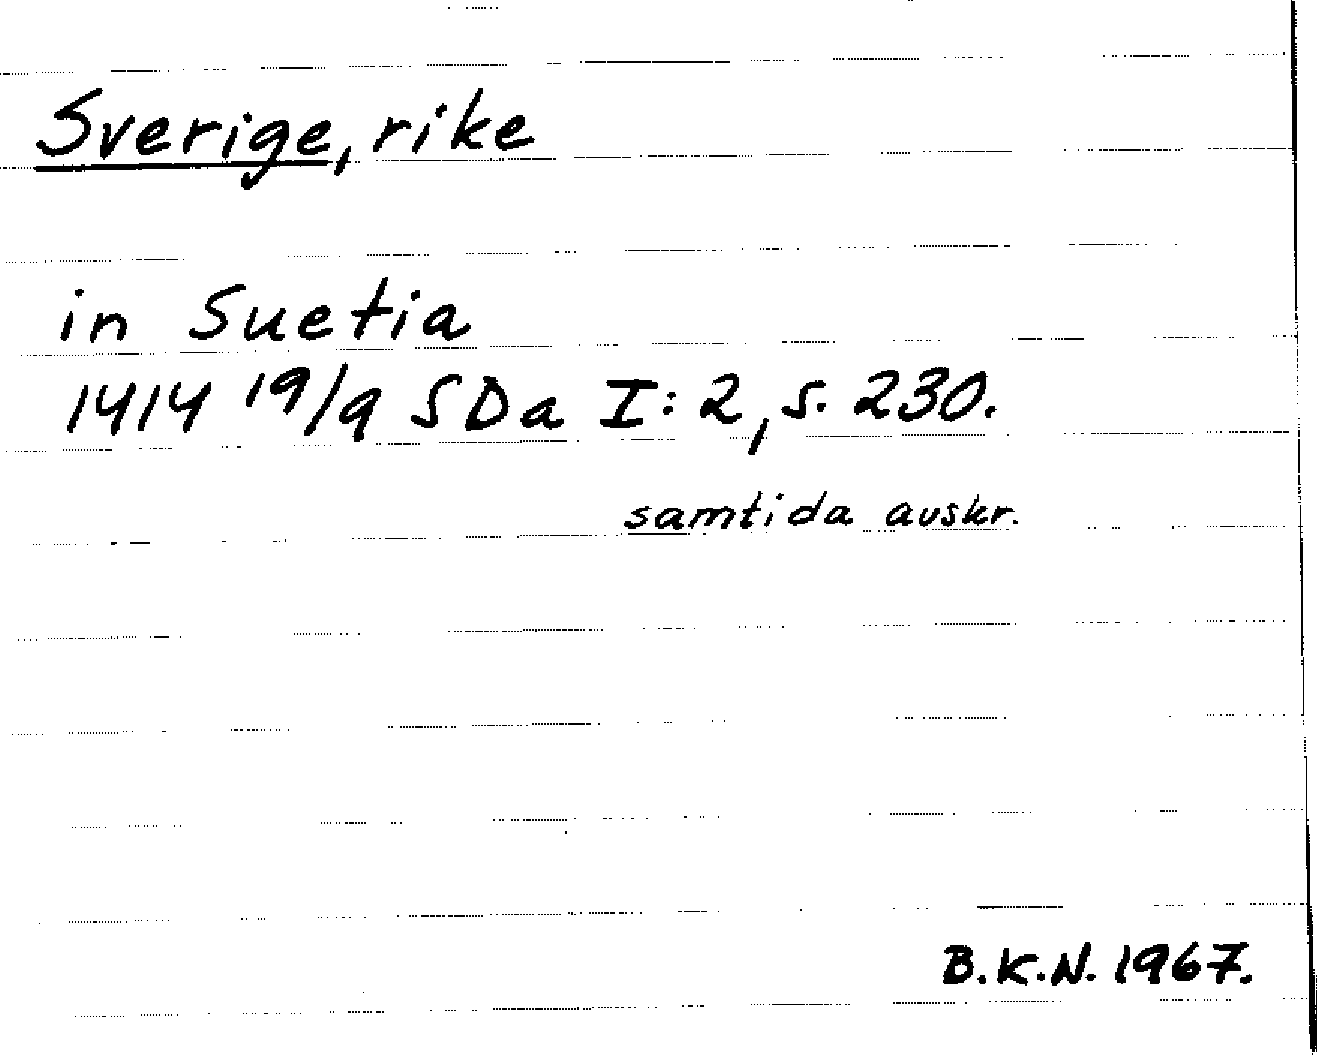 Sverige, rike
in Suetia
1414 19/9 SDa I: 2, s. 230.
samtida avskr.
B.K.N. 1967.